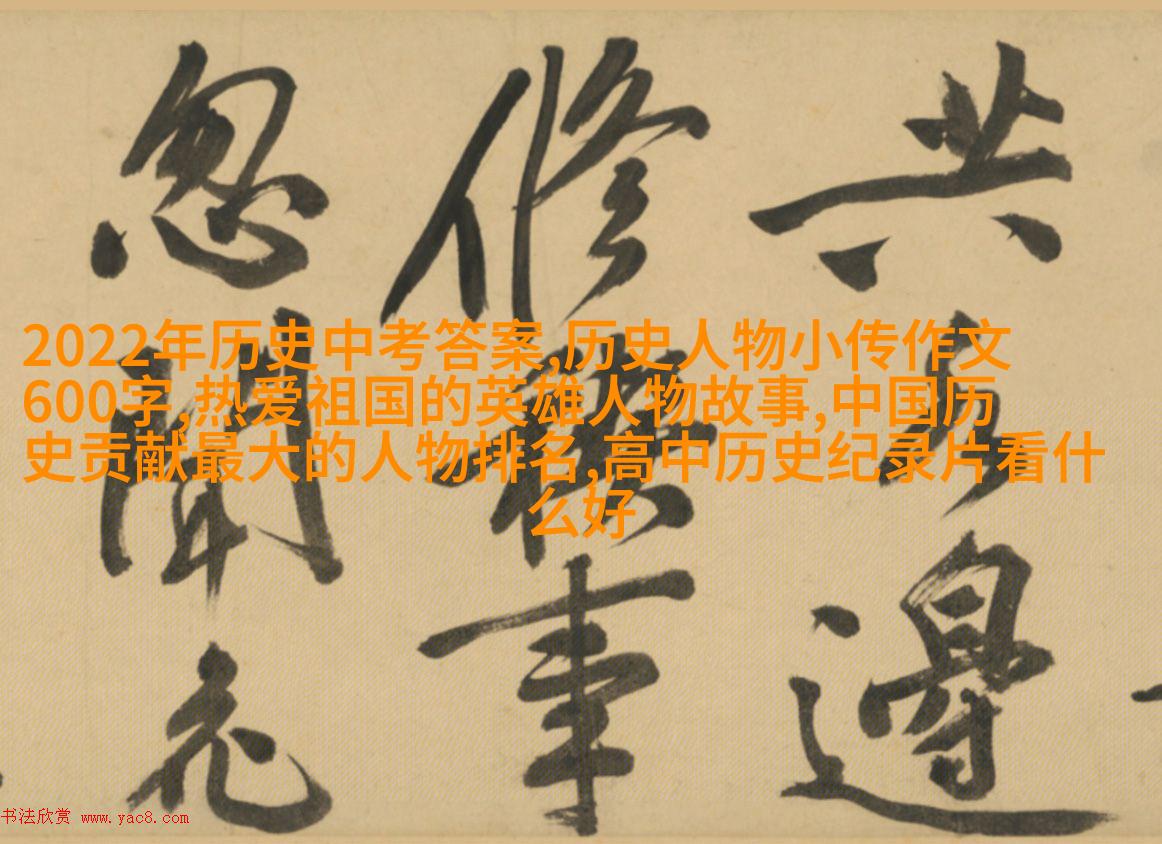 共
修禊事
忽聞
2022年历史中考答案,历史人物小传作文
600字,热爱祖国的英雄人物故事,中国历
史贡献最大的人物排名,高中历史纪录片看什
么好
书法欣赏 www.yac8.com